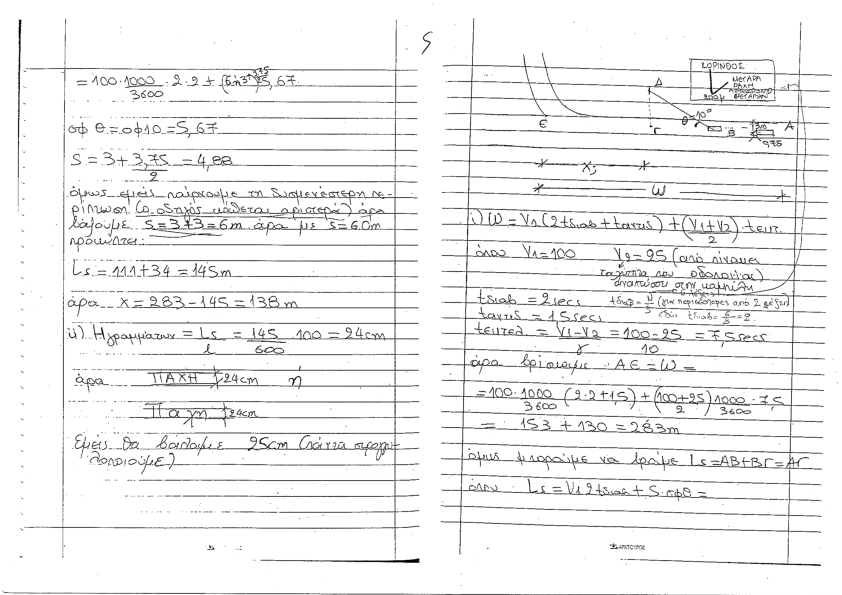 5
= 100·1000/3600 · 2·2 + (6 ή 3+3,75/2) 5,67
σφ θ = σφ10 = 5,67
S = 3 + 3,75/2 = 4,88
όμως εμείς παίρνουμε τη δυσμενέστερη πε-
ρίπτωση (ο οδηγός κάθεται αριστερά) άρα
βάζουμε S = 3+3 = 6m άρα με S = 6.0m
προκύπτει:
Ls = 111 + 34 = 145m
άρα x = 283 - 145 = 138m
ii) Hγραμμάτων = Ls/l = 145/600 100 = 24cm
άρα ΠΑΧΗ 24cm ή
Παχη 24cm
Εμείς θα βάλουμε 25cm (πάντα στρογγυ-
λοποιούμε)
ΚΟΡΙΝΘΟΣ
ΜΕΓΑΡΑ
ΠΑΧΗ
ΑΕΡΟΔΡΟΜ
ΜΕΓΑΡΩΝ
200μ
Δ
θ=10°
Ε Γ Β 3m Α
3.75
x;
W
i) W = V1 (2tδιαβ + tαντιδ) + (V1+V2)/2 · tεπτ.
όπου V1 = 100 V2 = 25 (από πίνακα
ταχύτητα που ο οδηγός πιάνει
αναπτύσσει στην καμπύλη
tδιαβ = 2secs tδιαβ = N/3 (για περισσότερες από 2 λέξεις)
tαντιδ = 1,5secs εδώ tδιαβ = 6/3 = 2.
tεπιτελ = V1-V2/γ = 100-25/10 = 7,5secs
άρα βρίσκουμε AE = W =
= 100·1000/3600 (2·2+1,5) + (100+25)/2 1000/3600 · 7,5
= 153 + 130 = 283m
όμως μπορούμε να βρούμε Ls = AB+BΓ = AΓ
όπου Ls = V1 2tδιαβ + S·σφθ =
ΑΡΚΤΟΥΡΟΣ